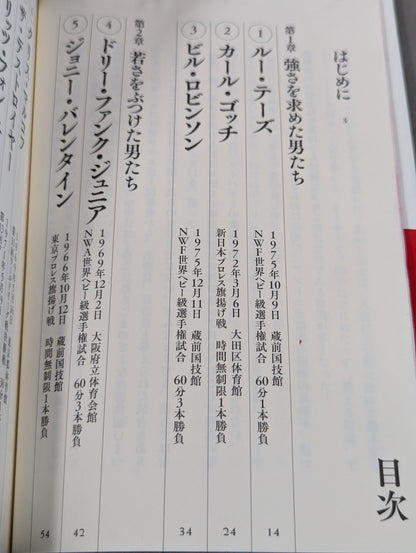 目次
はじめに 3
第1章 強さを求めた男たち
① ルー・テーズ
1975年10月9日 蔵前国技館
NWF世界ヘビー級選手権試合 60分3本勝負
14
② カール・ゴッチ
1972年3月6日 大田区体育館
新日本プロレス旗揚げ戦 時間無制限1本勝負
24
③ ビル・ロビンソン
1975年12月11日 蔵前国技館
NWF世界ヘビー級選手権試合 60分3本勝負
34
第2章 若さをぶつけた男たち
④ ドリー・ファンク・ジュニア
1969年12月2日 大阪府立体育会館
NWA世界ヘビー級選手権試合 60分3本勝負
42
⑤ ジョニー・バレンタイン
1966年10月12日 蔵前国技館
東京プロレス旗揚げ戦 時間無制限1本勝負
54